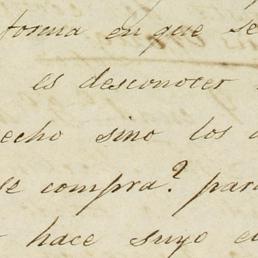 forma en que se
es desconocer
echo sino los
se compra? para
hace suyo e